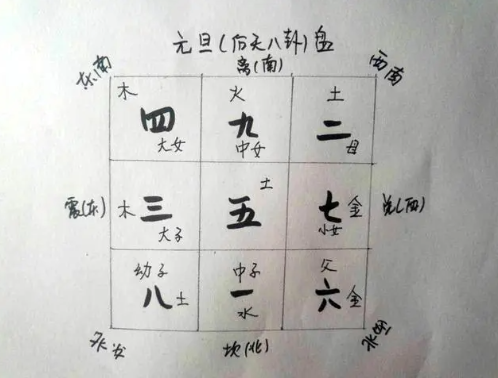 元旦(后天八卦)盘
东南 离(南) 西南
木 火 土
四 九 二
大女 中女 母
土
震(东) 木 三 五 七 金 兑(西)
大子 小女
幼子 中子 父
八 土 一 六 金
水
坎(北)